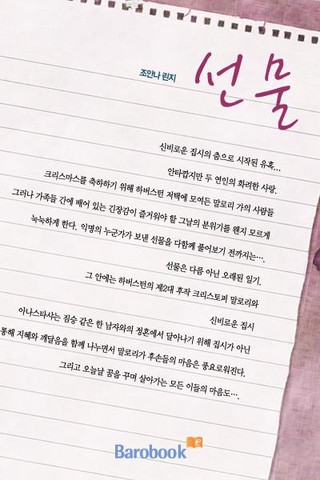 조안나 린지
선물
신비로운 집시의 춤으로 시작된 유혹...
안타깝지만 두 연인의 화려한 사랑.
크리스마스를 축하하기 위해 하버스턴 저택에 모여든 말로리 가의 사람들
그러나 가족들 간에 배어 있는 긴장감이 즐거워야 할 그날의 분위기를 왠지 모르게
눅눅하게 한다. 익명의 누군가가 보낸 선물을 다함께 풀어보기 전까지는….
선물은 다름 아닌 오래된 일기.
그 안에는 하버스턴의 제2대 후작 크리스토퍼 말로리와
신비로운 집시
아나스타샤는 짐승 같은 한 남자와의 정혼에서 달아나기 위해 집시가 아닌
통해 지혜와 깨달음을 함께 나누면서 말로리가 후손들의 마음은 풍요로워진다.
그리고 오늘날 꿈을 꾸며 살아가는 모든 이들의 마음도….
Barobook